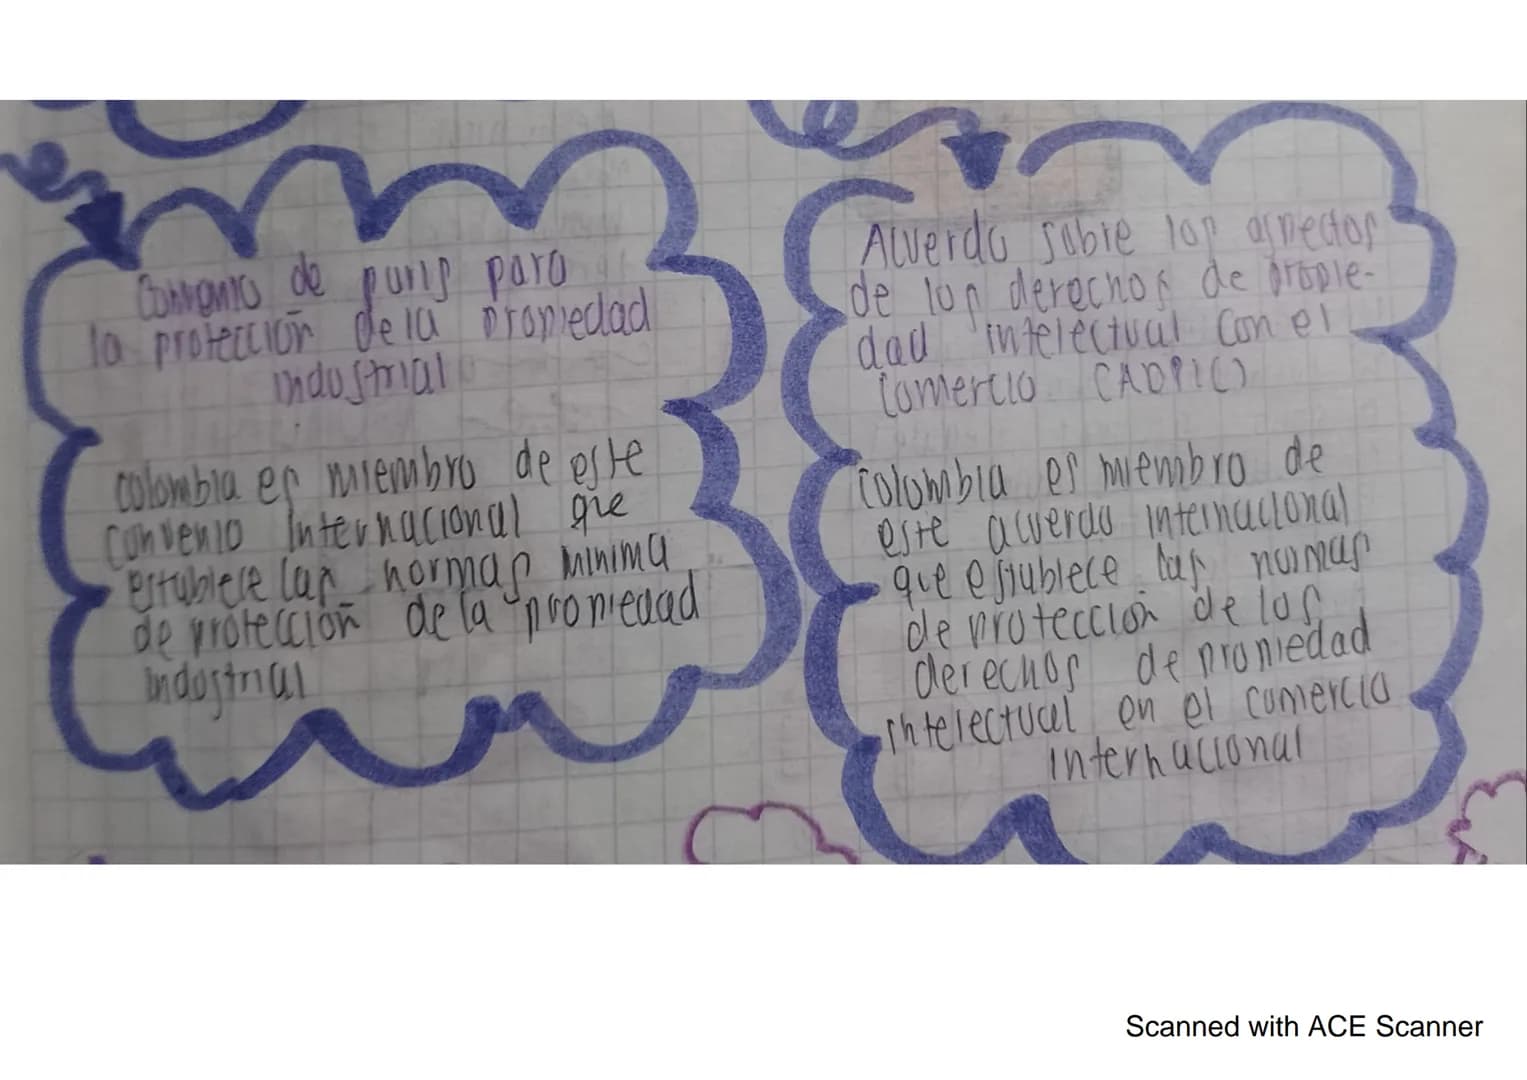 Convenio de paris para
la protección de la propiedad
industrial
colombia es miembro de este
convenio internacional que
establece las normas minima
de protección de la propiedad
industrial
Acuerdo sobre los aspectos
de los derechos de propie-
dad intelectual con el
comercio CADPIC)
colombia es miembro de
este acuerdo internacional
que establece las normas
de protección de los
derechos de propiedad
intelectual en el comercio
internacional
Scanned with ACE Scanner